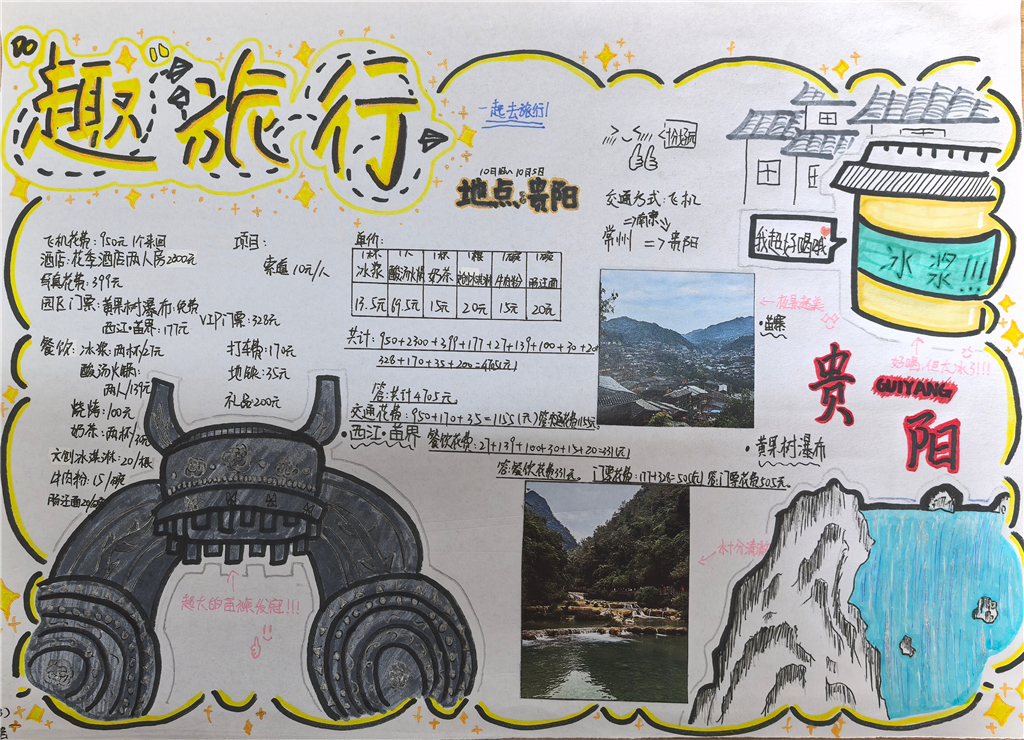 趣旅行
一起去旅行!
10日
10月5日
地点:贵阳
交通方式:飞机
=>南京
常州 => 贵阳
我超好喝哦
冰浆!!!
好喝,但太冰了!!!
贵阳
GUIYANG
飞机花费:950元
酒店:花季酒店两人房2300元
399元
园区门票:黄果树瀑布:免费
西江·苗界:177元
VIP门票:328元
餐饮:冰浆:两杯27元
酸汤火锅:
两人139元
烧烤:100元
奶茶:两杯
文创冰淇淋:20/根
牛肉粉:15/碗
肠旺面20/碗
项目:
索道10元/人
打车费:170元
地铁:35元
礼品200元
单价:
冰浆 酸汤火锅 奶茶 牛肉粉 肠旺面
13.5元 69.5元 15元 20元 15元 20元
共计:950+2300+399+177+27+139+100+30+20
328+170+35+200=4705元
答:共计4705元
交通花费:950+170+35=1155(元)答:交通费1155元
·西江·苗界
餐饮花费:27+139+100+30+15+20=331(元)
答:餐饮花费331元。
门票花费:177+328=505(元) 答:门票花费505元。
·苗寨
·黄果树瀑布
水十分清澈
超大的苗族发冠!!!